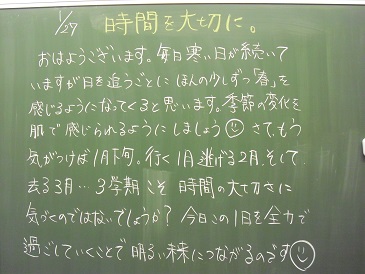 1/27 時間を大切に。
おはようございます。毎日寒い日が続いて
いますが日を追うごとにほんの少しずつ「春」を
感じるようになってくると思います。季節の変化を
肌で感じられるようにしましょう さて、もう
気がつけば1月下旬。行く1月逃げる2月、そして、
去る3月…3学期こそ 時間の大切さに
気づくのではないでしょうか？今日この1日を全力で
過ごしていくことで明るい未来につながるのです